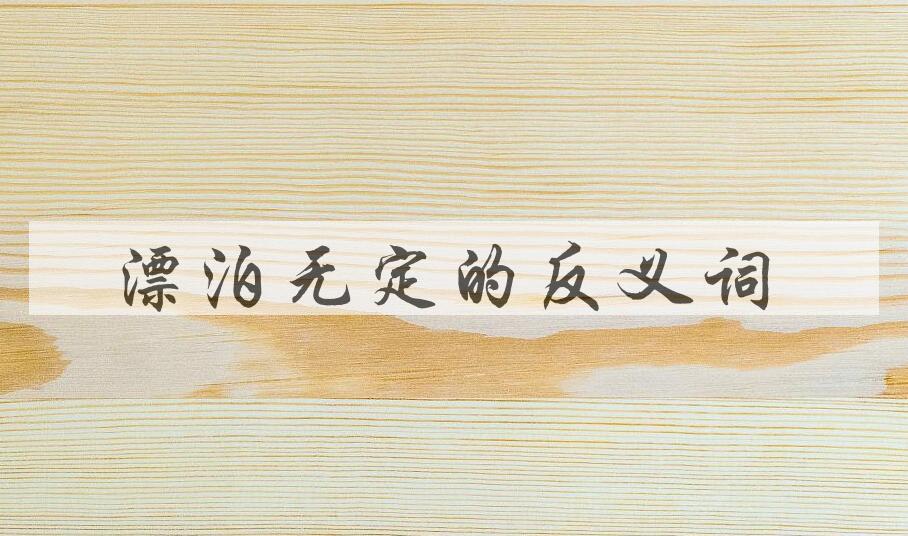 漂泊无定的反义词